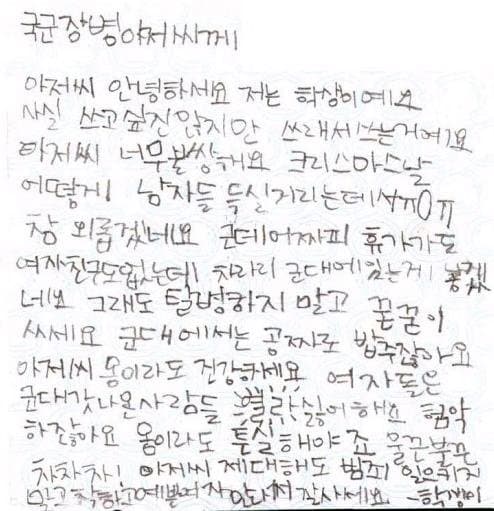 국군장병아저씨께
아저씨 안녕하세요 저는 학생이예요
사실 쓰고싶진 않지만 쓰래서쓰는거에요
아저씨 너무불쌍해요 크리스마스날
어떻게 남자들 득실거리는데서ㅠ0ㅠ
참 외롭겠네요 군데어짜피 휴가가도
여자친구도없는데 차라리 군대에있는게 좋겠
네요 그래도 탈병하지 말고 꾿꾿이
싸세요 군대에서는 공짜로 밥주잖아요
아저씨 몸이라도 건강하세요 여자들은
군대갓나온사람들 별루싫어해요 험악
하잖아요 몸이라도 튼실해야죠 울끈불끈
차차차! 아저씨 제대해도 범죄 일으키지
말고착하고예쁜여자만나서 잘사세요 -학생이